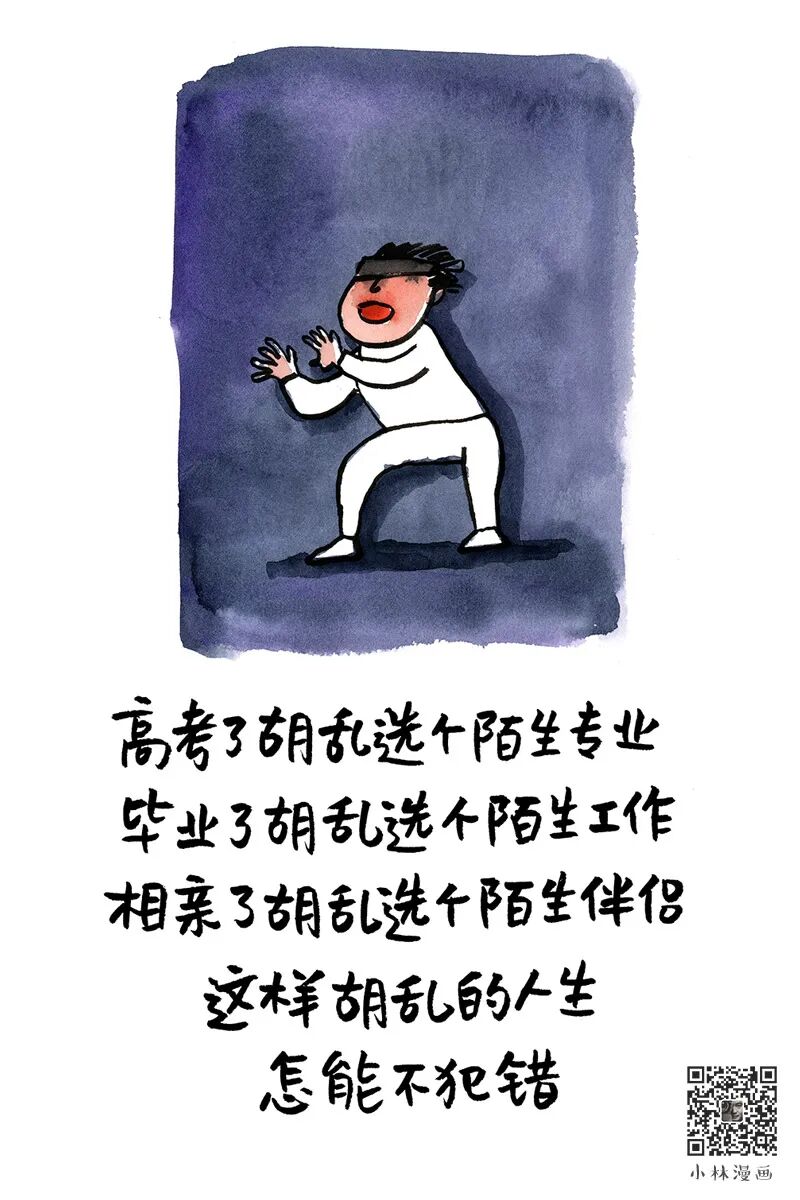 高考了胡乱选个陌生专业
毕业了胡乱选个陌生工作
相亲了胡乱选个陌生伴侣
这样胡乱的人生
怎能不犯错
小林漫画